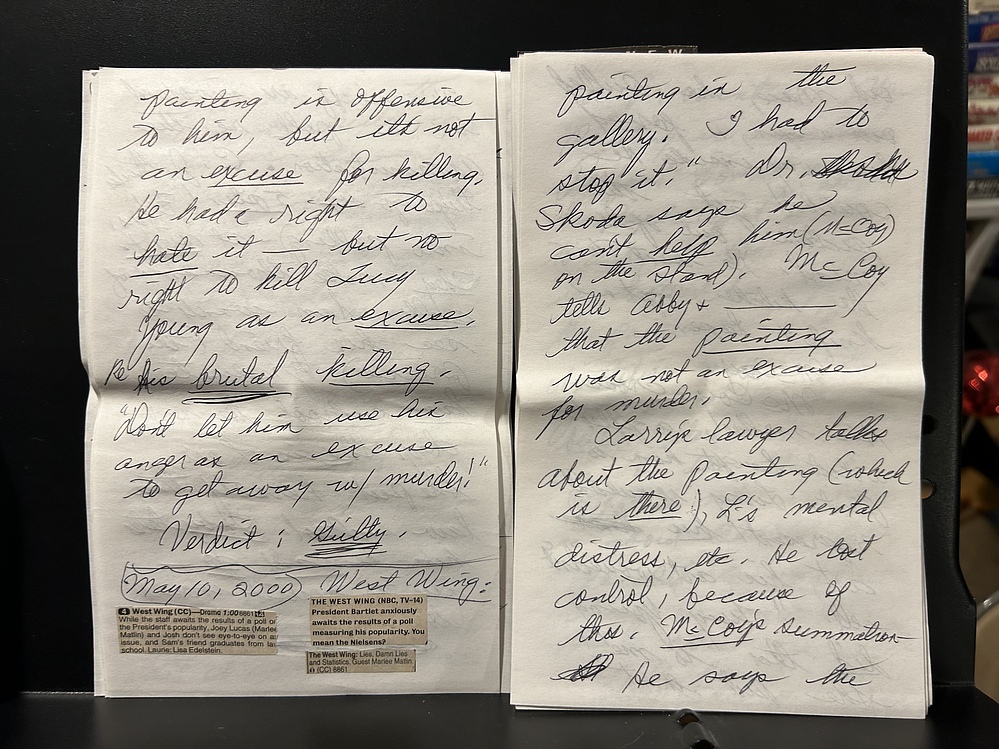 painting is offensive
to him, but it's not
an excuse for killing.
He had a right to
hate it — but no
right to kill Lucy
Young as an excuse.
Re his brutal killing.
"Don't let him use his
anger as an excuse
to get away w/ murder!"
Verdict: Guilty.
May 10, 2000 West Wing:
4 West Wing (CC)—Drama 1:00 6861
While the staff awaits the results of a poll on
the President's popularity, Joey Lucas (Marlee
Matlin) and Josh don't see eye-to-eye on an
issue, and Sam's friend graduates from law
school. Laurie: Lisa Edelstein.
THE WEST WING (NBC, TV-14)
President Bartlet anxiously
awaits the results of a poll
measuring his popularity. You
mean the Nielsens?
The West Wing: Lies, Damn Lies
and Statistics. Guest Marlee Matlin.
(CC) 6861
painting in the
gallery. I had to
stop it." Dr.
Skoda says he
can't help him (McCoy)
on the stand). McCoy
tells Abby + ————
that the painting
was not an excuse
for murder.
Larry's lawyer talks
about the painting (which
is there!), L's mental
distress, etc. He lost
control, because of
this. McCoy's summation—
He says the